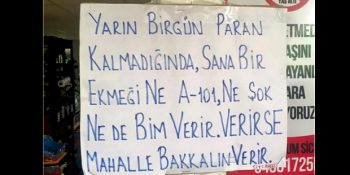 YARIN BİRGÜN PARAN
KALMADIĞINDA, SANA BİR
EKMEĞİ NE A-101, NE ŞOK
NE DE BİM VERİR. VERİRSE
MAHALLE BAKKALIN VERİR.
ETMED
AŞINI
AYANL
ARA
YORUZ